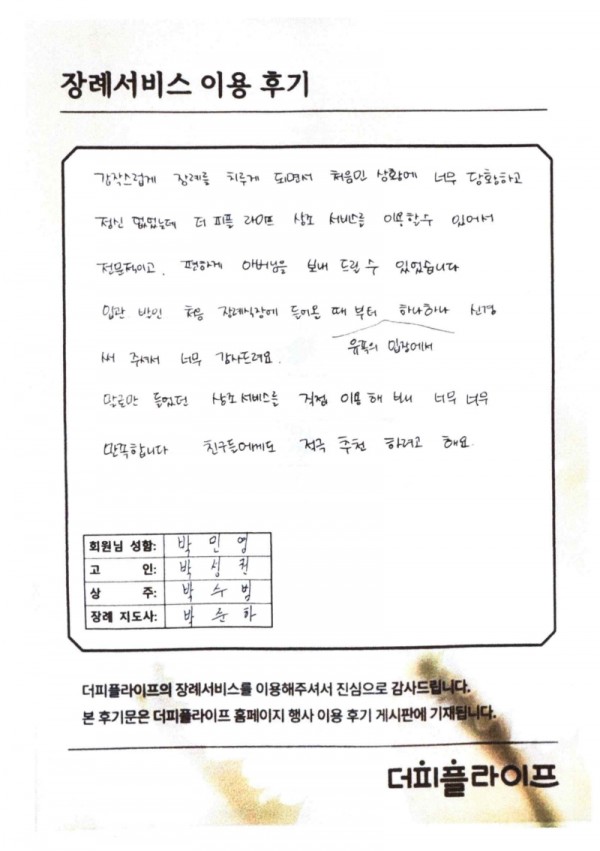 장례서비스 이용 후기
갑작스럽게 장례를 치루게 되면서 처음인 상황에 너무 당황하고
정신 없었는데 더 피플 라이프 상조 서비스를 이용할수 있어서
전문적이고, 편하게 아버님을 보내 드릴 수 있었습니다
입관 발인 처음 장례식장에 들어온 때 부터 하나하나 신경
유족의 입장에서
써 주셔서 너무 감사드려요.
말로만 들었던 상조서비스를 직접 이용해 보니 너무 너무
만족합니다 친구들에게도 적극 추천 하려고 해요.
회원님 성함: 박 민 영
고 인: 박 성 권
상 주: 박 수 범
장례 지도사: 박 준 하
더피플라이프의 장례서비스를 이용해주셔서 진심으로 감사드립니다.
본 후기문은 더피플라이프 홈페이지 행사 이용 후기 게시판에 기재됩니다.
더피플라이프